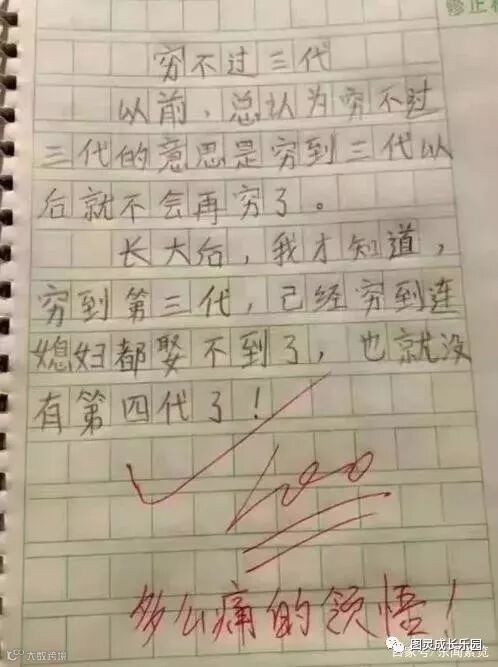 修正
穷不过三代
以前，总认为穷不过
三代的意思是穷到三代以
后就不会再穷了。
长大后，我才知道，
穷到第三代，已经穷到连
媳妇都娶不到了，也就没
有第四代了！
100
多么痛的领悟！
图灵成长乐园
大数跨境